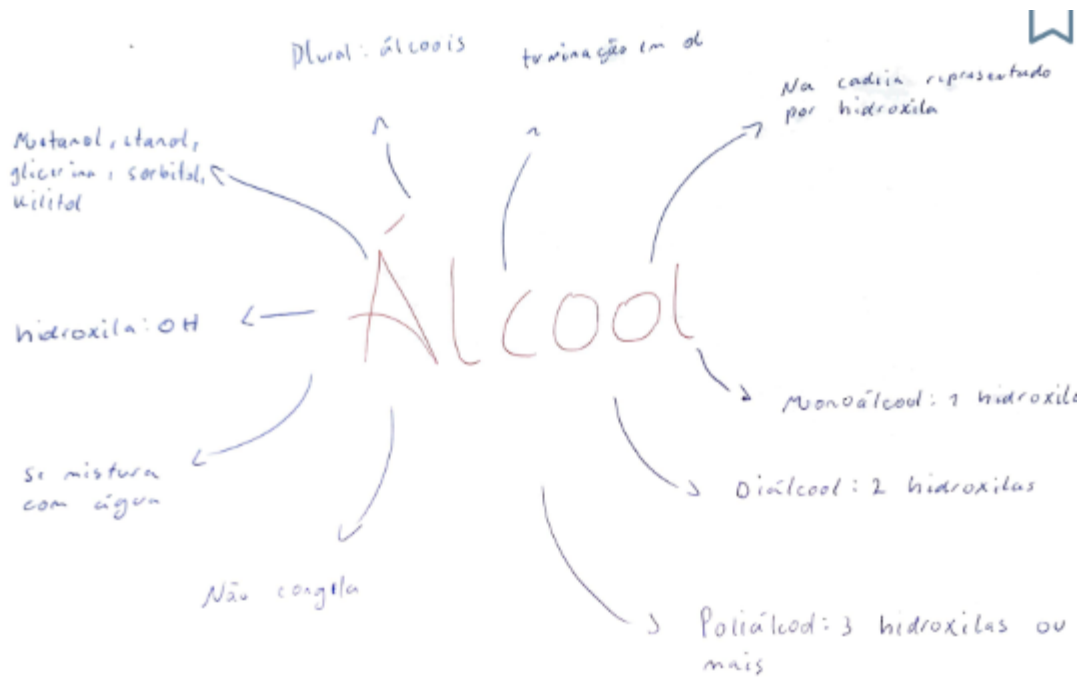 Plural: álcoois
terminação em ol
Na cadeia representado
por hidroxila
Metanol, etanol,
glicerina, sorbitol,
xilitol
Álcool
hidroxila: OH
Monoálcool: 1 hidroxila
Se mistura
com água
Diálcool: 2 hidroxilas
Não congela
Poliálcool: 3 hidroxilas ou
mais